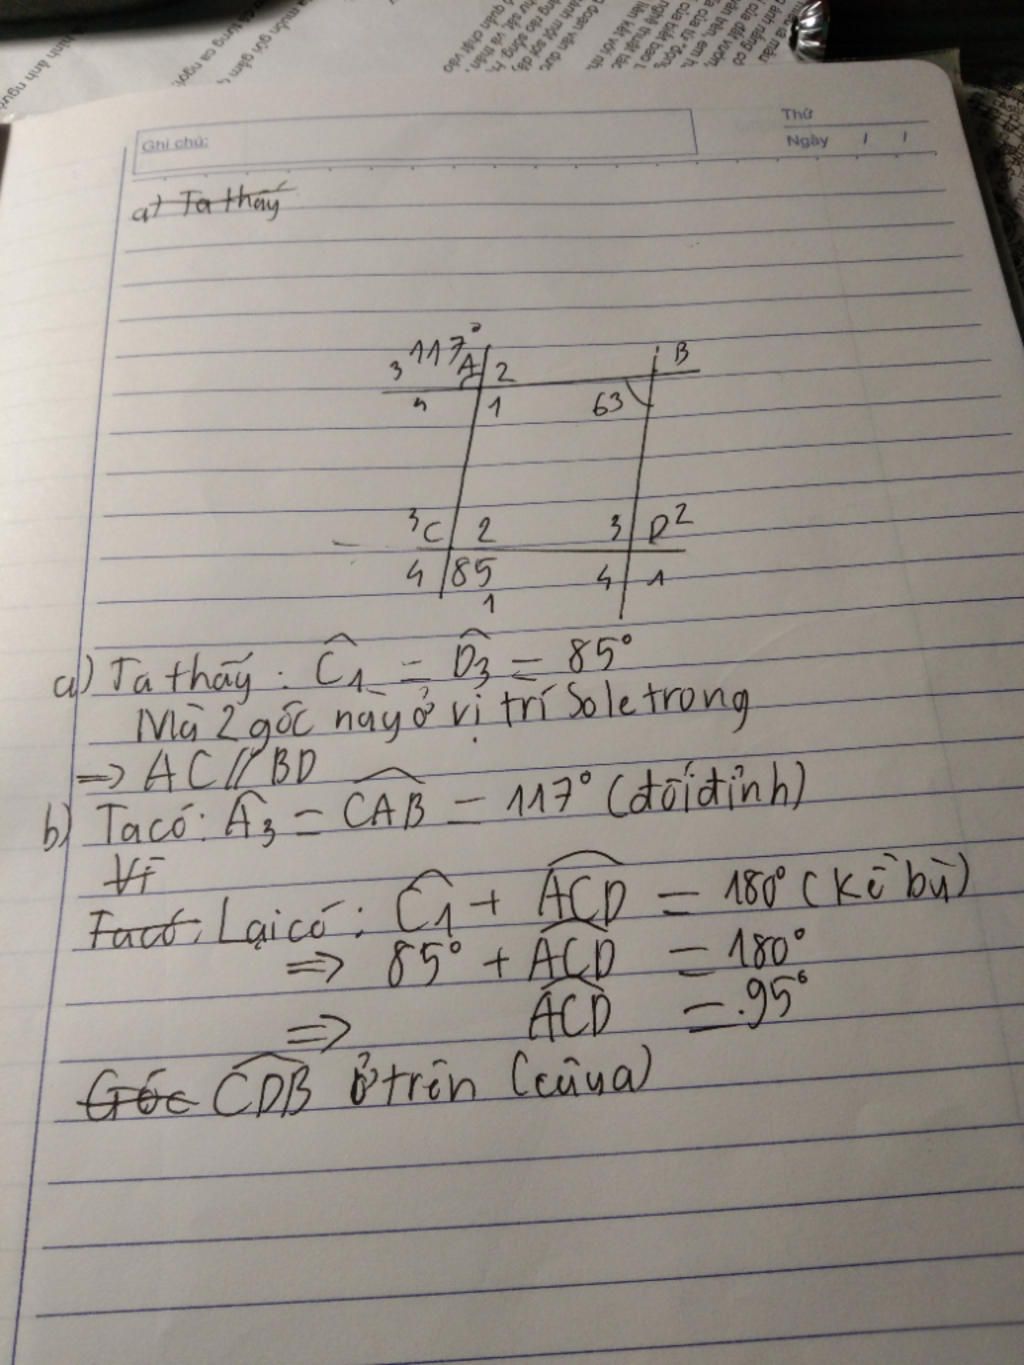 Ghi chú:
Thứ
Ngày / /
a) Ta thấy
3 117° A 2 B
4 1 63
3 C 2 3 D 2
4 85 4 1
1
a) Ta thấy: C₁ = D₃ = 85°
Mà 2 góc này ở vị trí So le trong
=> AC // BD
b) Ta có: A₃ = CAB = 117° (đối đỉnh)
Vì
Ta có: Lại có: C₁ + ACD = 180° (Kề bù)
=> 85° + ACD = 180°
=> ACD = 95°
Góc CDB ở trên (câu a)